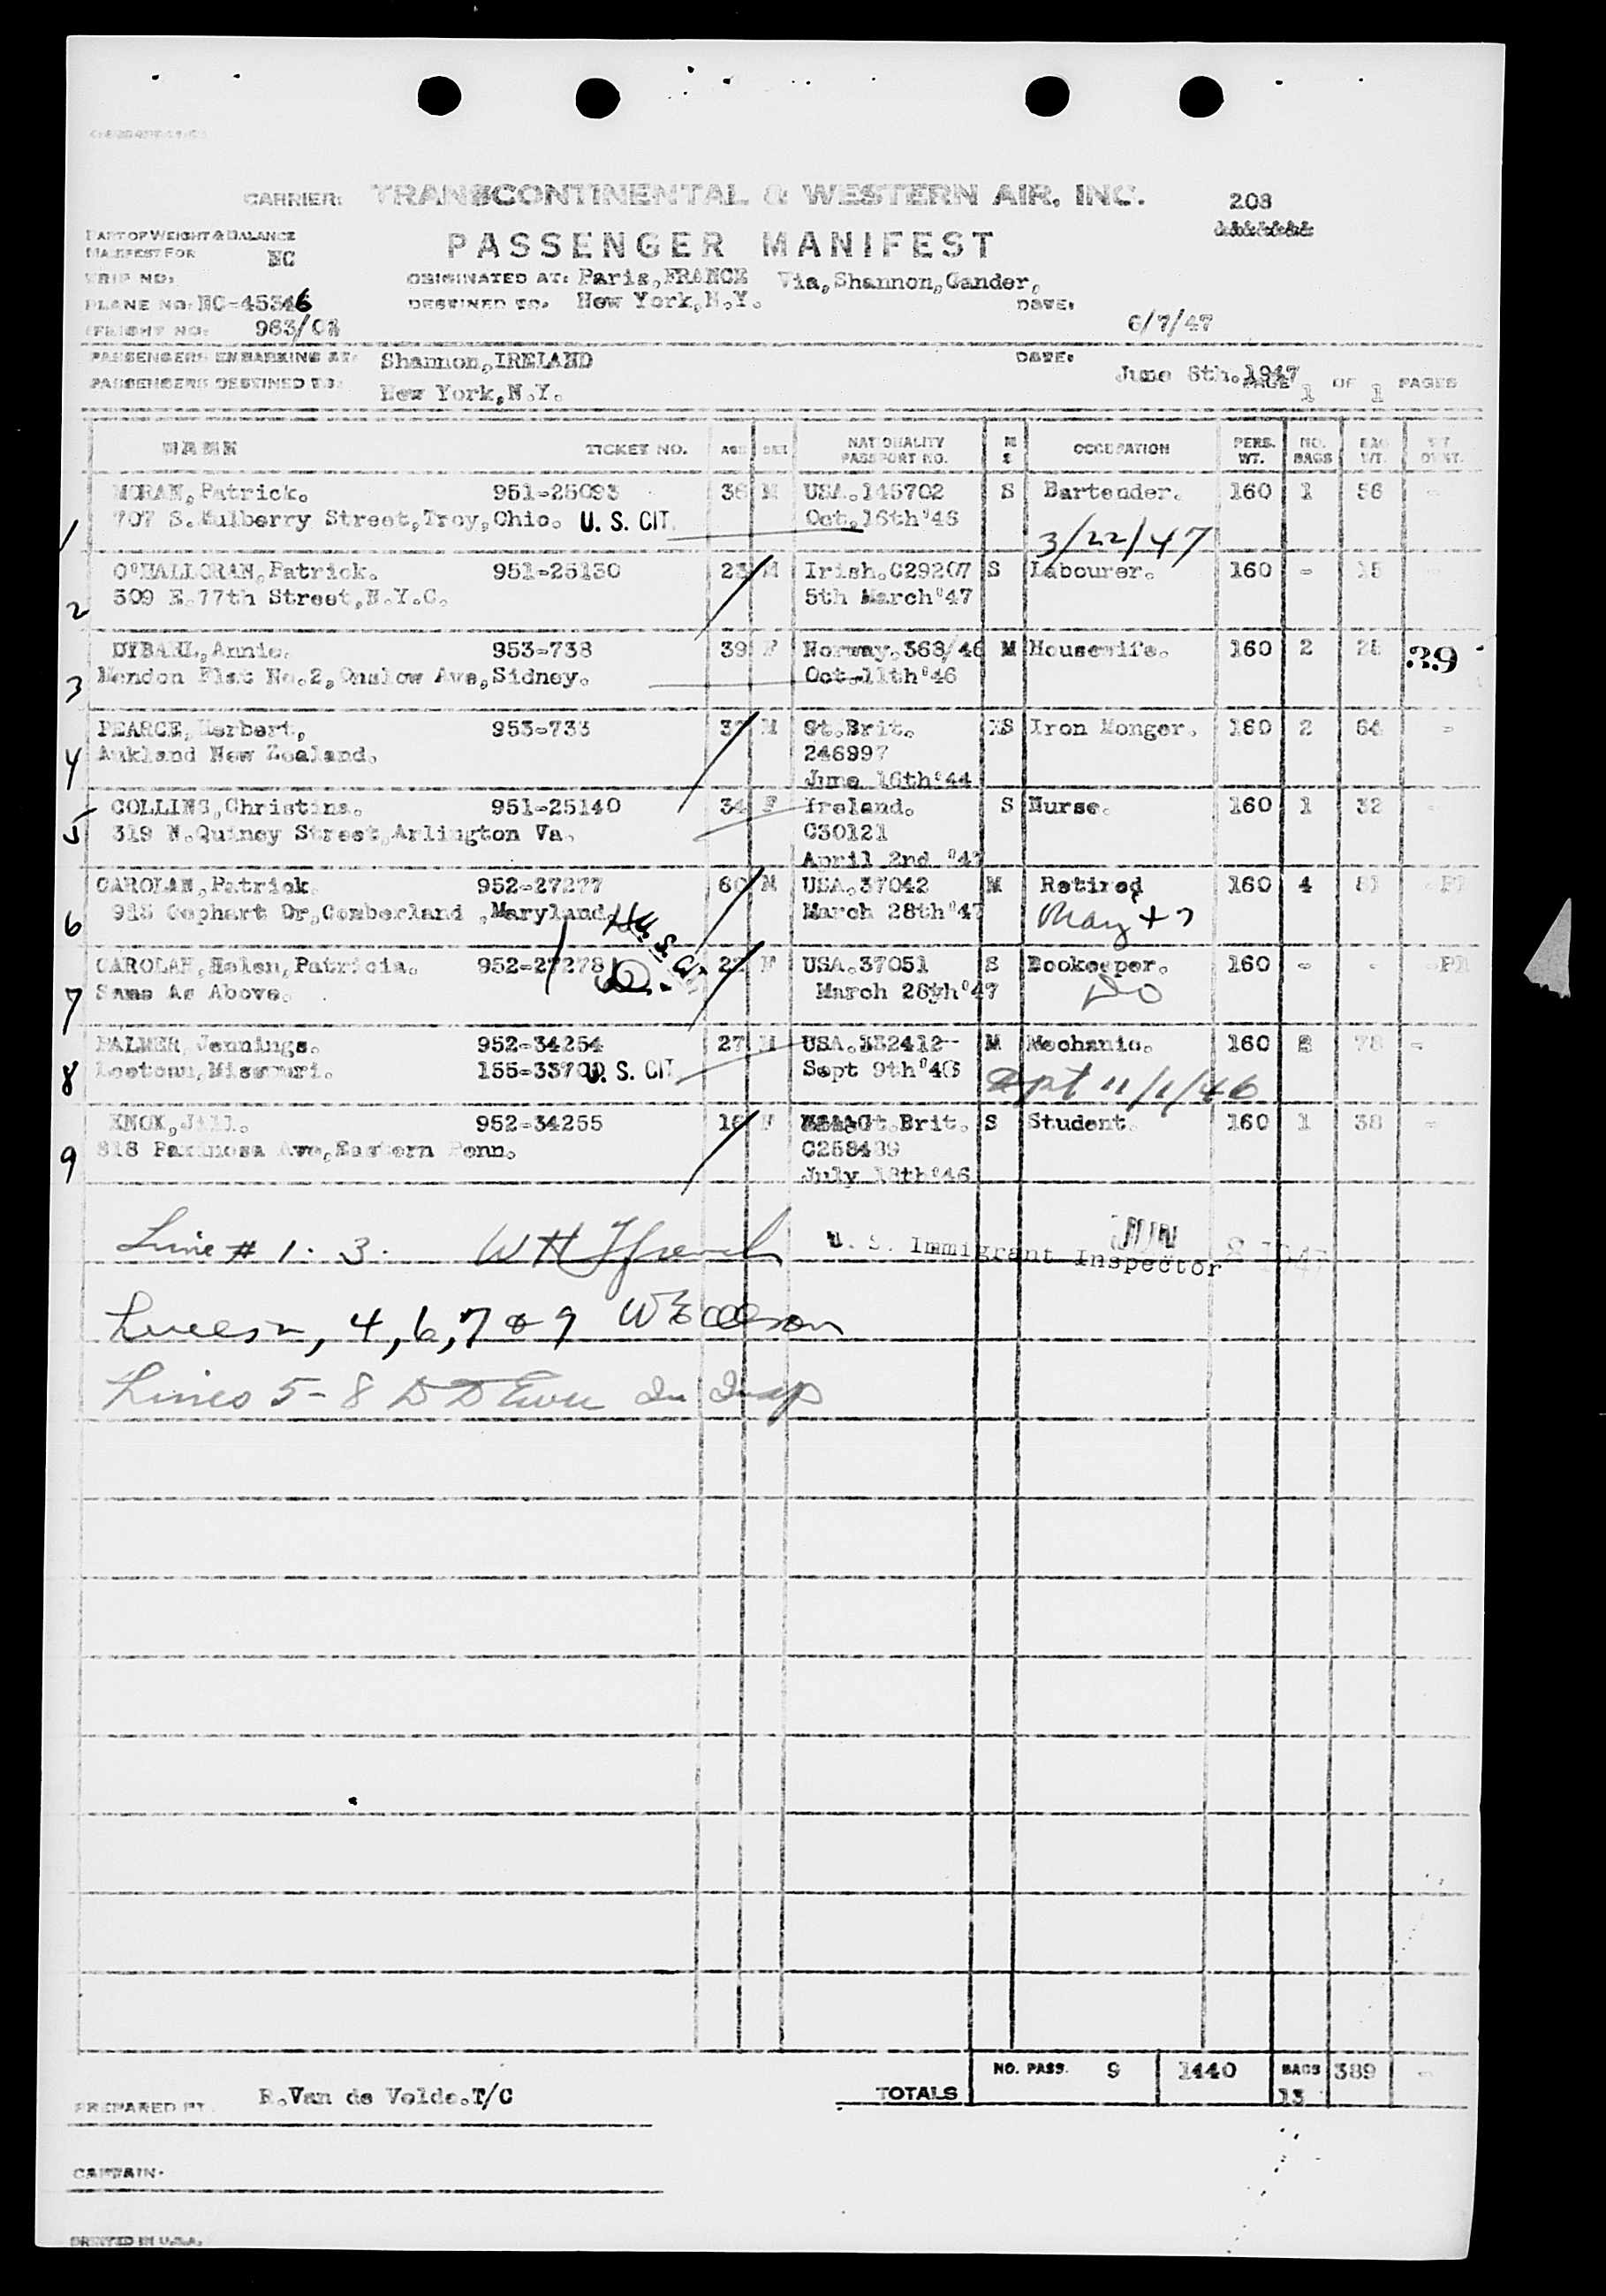 CARRIER: TRANSCONTINENTAL & WESTERN AIR, INC. 208
PASSENGER MANIFEST
PART OF WEIGHT & BALANCE
MANIFEST FOR NC
TRIP NO:
ORIGINATED AT: Paris,FRANCE Via,Shannon,Gander,
PLANE NO: NC-45346 DESTINED TO: New York,N.Y. DATE:
FLIGHT NO: 963/ 6/7/47
PASSENGERS EMBARKING AT: Shannon,IRELAND DATE: June 8th.1947
PASSENGERS DESTINED TO: New York,N.Y. PAGE 1 OF 1 PAGES
NAME TICKET NO. AGE SEX NATIONALITY PASSPORT NO. M S OCCUPATION PERS. WT. NO. BAGS BAG WT.
1 MORAN,Patrick. 951-25093 36 M USA.145702 S Bartender. 160 1 56 -
707 S.Mulberry Street,Troy,Ohio. U. S. CIT. Oct.16th'46
3/22/47
2 O'HALLORAN,Patrick. 951-25130 23 M Irish.C29207 S Labourer. 160 - 15
309 E.77th Street,N.Y.C. 5th March'47
3 Annie. 953-738 39 F Norway.368/46 M Housewife. 160 2 25 39
Mendon Flat No.2,Onslow Ave,Sidney. Oct-11th'46
4 PEARCE,Herbert, 953-733 37 M Gt.Brit. S Iron Monger. 160 2 64 -
Aukland New Zealand. 246997
June 16th'44
5 COLLINS,Christina. 951-25140 34 F Ireland. S Nurse. 160 1 32 -
319 N.Quincy Street,Arlington Va. C30121
April 2nd '47
6 CAROLAN,Patrick 952-27277 60 M USA.37042 M Retired 160 4 81
Gephart Dr,Comberland ,Maryland. March 28th'47 May 47
U. S. CIT.
7 CAROLAN,Helen,Patricia. 952-27278 22 F USA.37051 S Bookeeper. 160 - -
Same As Above. March 28yh'47 DO
8 PALMER,Jennings. 952-34254 27 M USA.132412-- M Mechanic. 160 2 78 -
Leetonu,Missouri. 155-33700 U. S. CIT. Sept 9th'46 11/1/46
9 KNOX,Jill. 952-34255 16 F Gt.Brit. S Student. 160 1 38 -
818 Paxinosa Ave,Eastern Penn. C258489
July 18th'46
Line # 1. 3. U. S. Immigrant Inspector JUN 8 1947
Lines 2, 4, 6, 7 & 9
Lines 5-8
TOTALS NO. PASS. 9 1440 BAGS 13 389 -
PREPARED BY. R.Van de Velde.T/C
CAPTAIN.
PRINTED IN U.S.A.